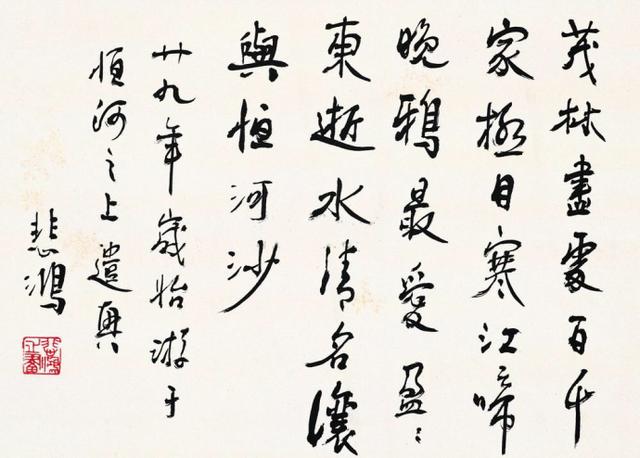 茂林盡處百千
家極目寒江啼
晚鴉最愛盈〻
東逝水清名讓
與恒河沙
廿九年歲始游于
恒河之上遣興
悲鴻